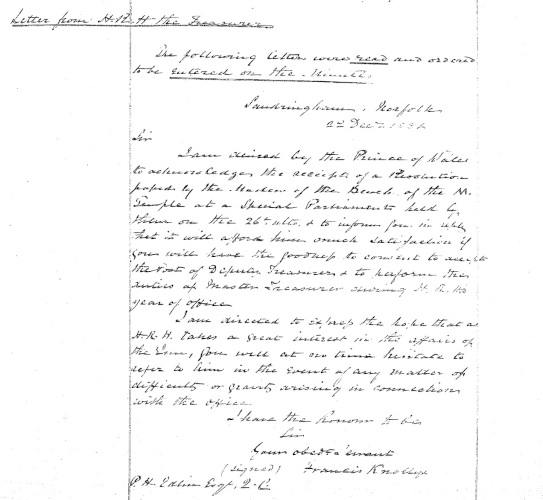 Letter from H.R.H. the Treasurer
The following letter were read and ordered
to be entered on the Minutes.
Sandringham, Norfolk
2nd Decr.
Sir
I am desired by the Prince of Wales
to acknowledge the receipt of a Resolution
passed by the Masters of the Bench of the M.
Temple at a Special Parliament held by
them on the 26th ulto. & to inform you in reply
that it will afford him much satisfaction if
you will have the goodness to consent to accept
the post of Deputy Treasurer & to perform the
duties of Master Treasurer during H.R.H's
year of office.
I am directed to express the hope that as
H.R.H. takes a great interest in the affairs of
the Inn, you will at no time hesitate to
refer to him in the event of any matter of
difficulty or gravity arising in connection
with the office.
I have the honour to be
Sir
Your obedt. servant
(signed) Francis Knollys
P. H. Edlin Esqr., Q.C.